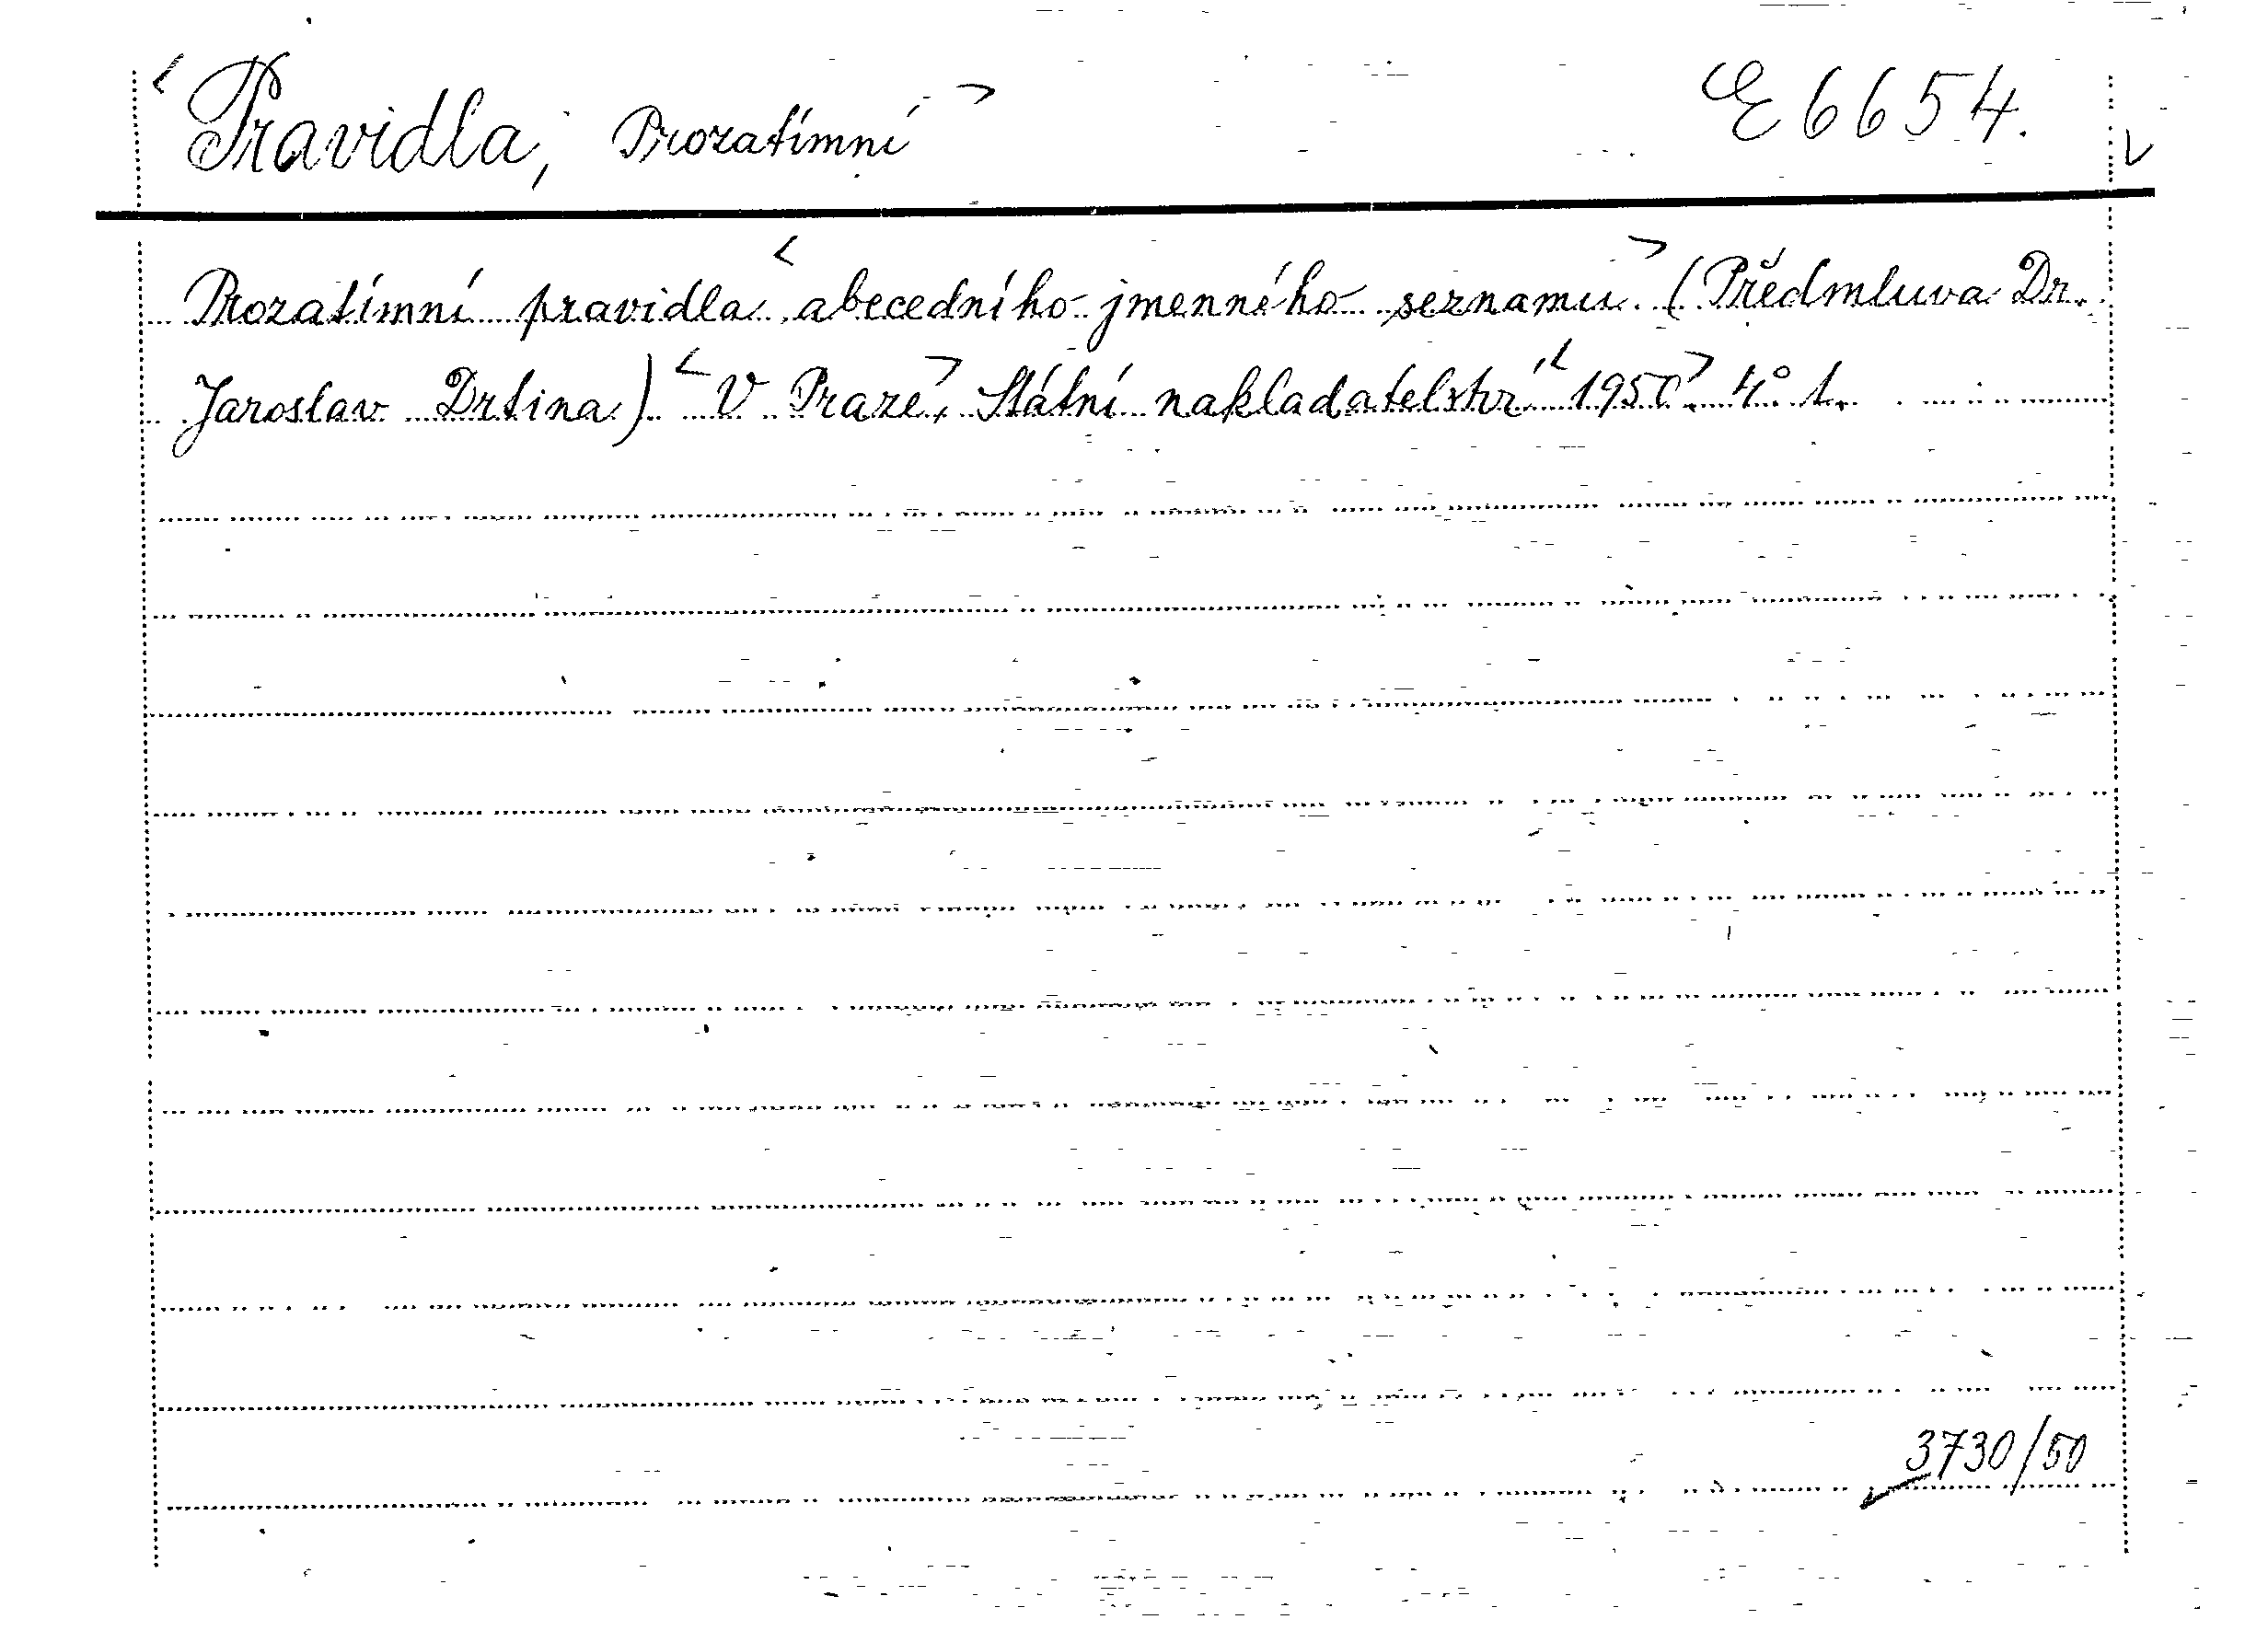 <Pravidla, Prozatímní> E 6654.
Prozatímní pravidla <abecedního jmenného seznamu> (Předmluva Dr.
Jaroslav Drtina) <V Praze>, Státní nakladatelství <1950>. 4° 1.
3730/50